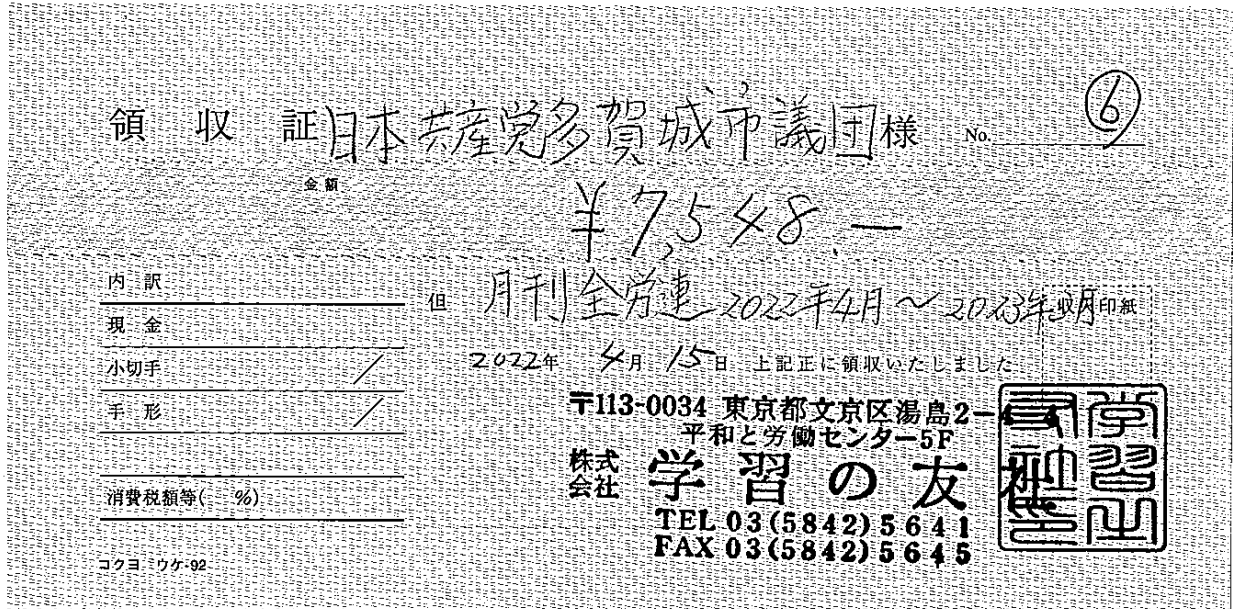 領収証 日本共産党多賀城市議団様 No. ⑥
金額
¥7,548.―
内訳
但 月刊全労連 2022年4月～2023年3月
収入印紙
現金
小切手 /
2022年 4月 15日 上記正に領収いたしました
手形 /
〒113-0034 東京都文京区湯島2-4-4
平和と労働センター5F
株式会社 学習の友社
消費税額等( %)
TEL 03(5842)5641
FAX 03(5842)5645
コクヨ ウケ-92